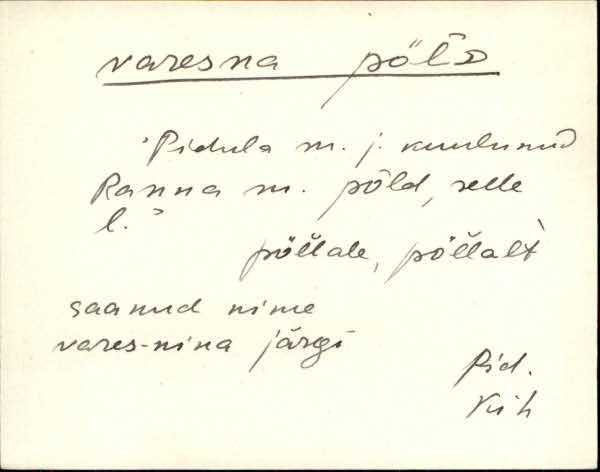 varesna põld
"Pidula m. j. kuulunud
Ranna m. põld, selle
l."
põllale, põllalt
saanud nime
vares-nina järgi
Pid.
Kih